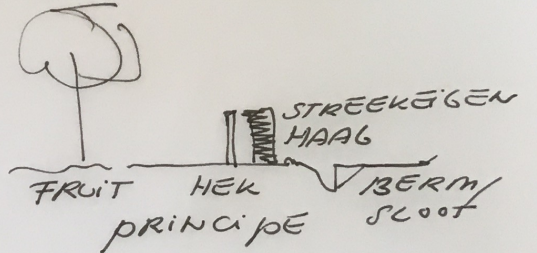 STREEKEIGEN
HAAG
FRUIT HEK BERM/
SLOOT
PRINCIPE